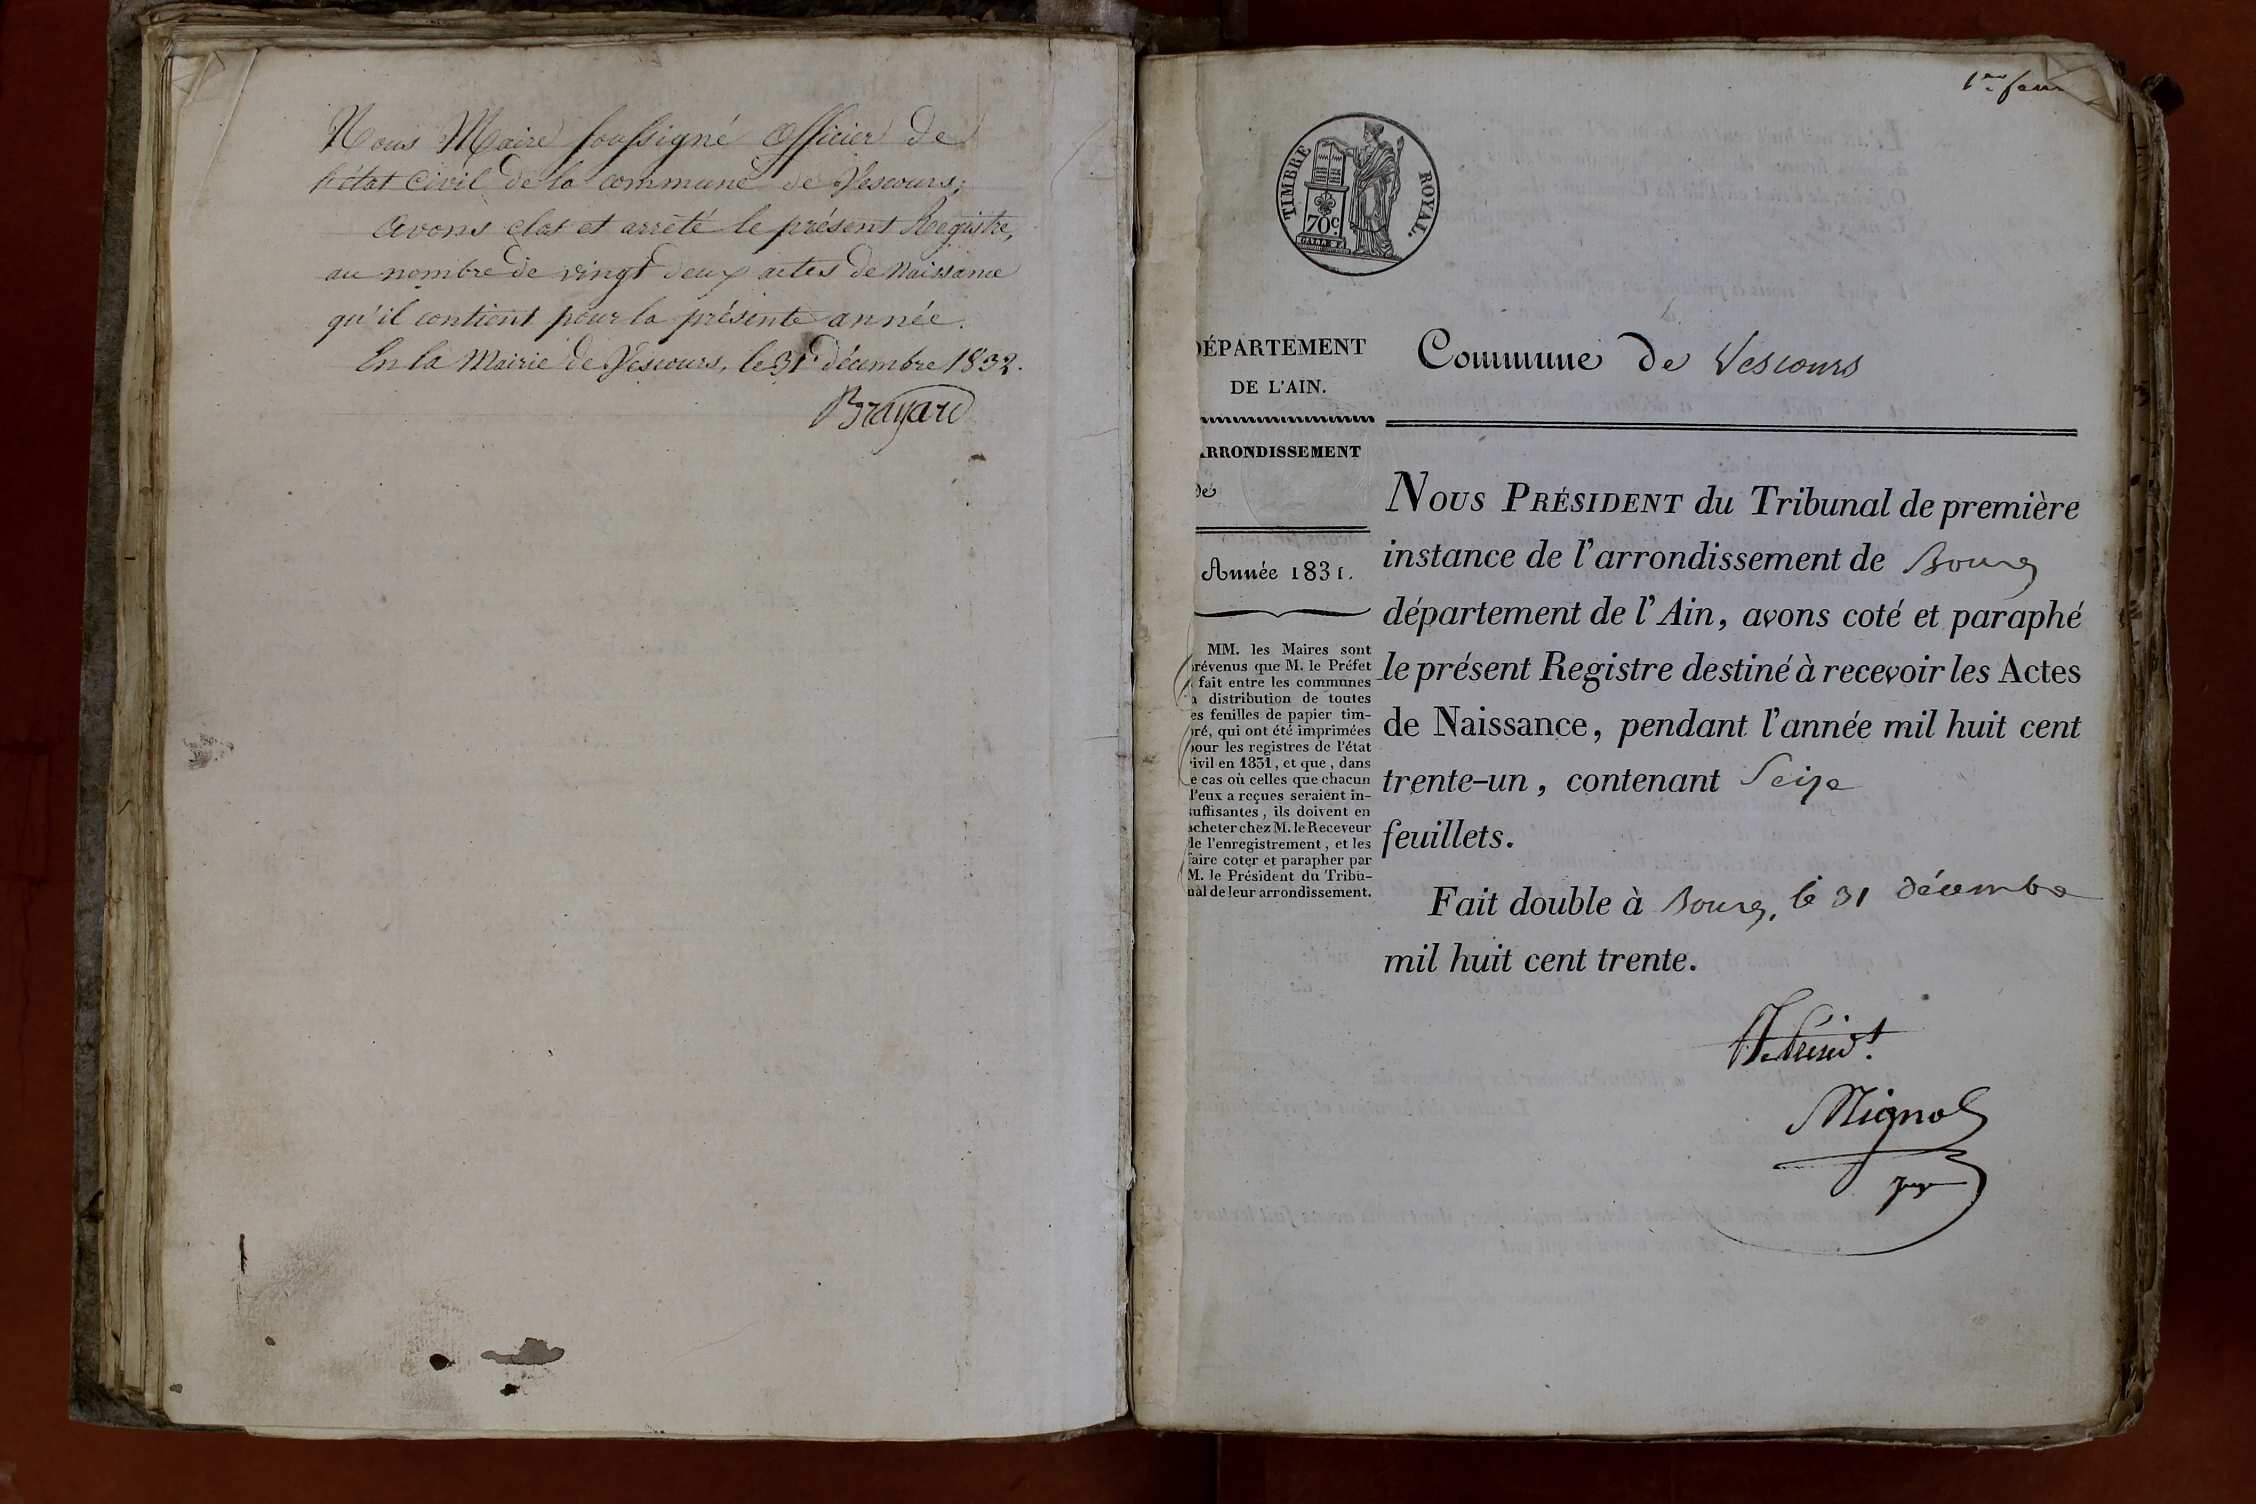 Nous Maire soussigné Officier de
l'état Civil de la commune de Vescours;
avons clos et arrêté le présent Registre,
au nombre de vingt deux actes de Naissance
qu'il contient pour la présente année.
En la Mairie de Vescours, le 31 décembre 1832.
Brayard
1er feui
TIMBRE ROYAL.
70c.
DÉPARTEMENT
DE L'AIN.
Commune de Vescours
ARRONDISSEMENT
de
Année 1831.
MM. les Maires sont
prévenus que M. le Préfet
fait entre les communes
la distribution de toutes
les feuilles de papier tim-
bré, qui ont été imprimées
pour les registres de l'état
civil en 1831, et que, dans
le cas où celles que chacun
d'eux a reçues seraient in-
suffisantes, ils doivent en
acheter chez M. le Receveur
de l'enregistrement, et les
faire coter et parapher par
M. le Président du Tribu-
nal de leur arrondissement.
NOUS PRÉSIDENT du Tribunal de première
instance de l'arrondissement de Bourg
département de l'Ain, avons coté et paraphé
le présent Registre destiné à recevoir les Actes
de Naissance, pendant l'année mil huit cent
trente-un, contenant Seize
feuillets.
Fait double à Bourg, le 31 décembre
mil huit cent trente.
juge